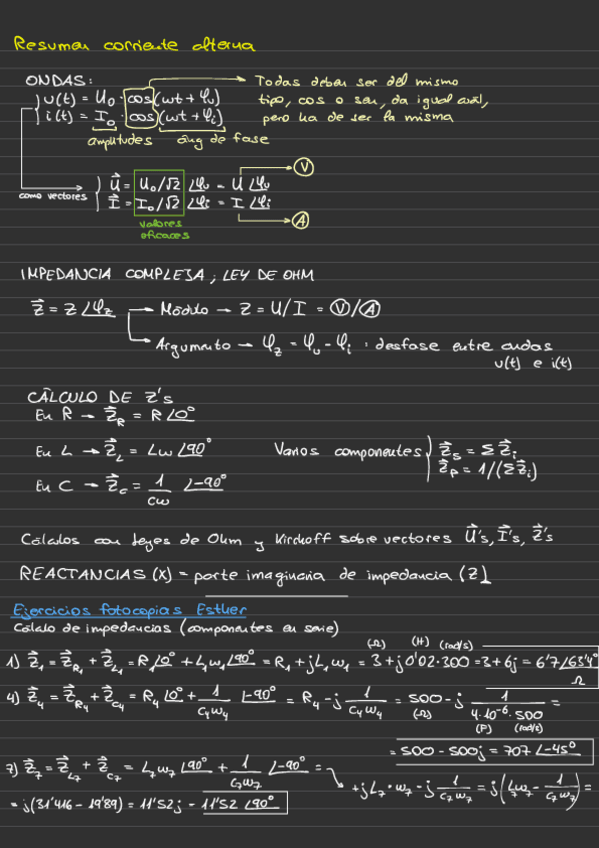 Resumen corriente alterna
ONDAS:
u(t) = U₀ · cos(ωt + φᵤ)
i(t) = I₀ · cos(ωt + φᵢ)
amplitudes áng de fase
Todas deben ser del mismo
tipo, cos o sen, da igual cuál,
pero ha de ser la misma
como vectores
U⃗ = U₀/√2 ∠φᵤ = U ∠φᵤ → V
I⃗ = I₀/√2 ∠φᵢ = I ∠φᵢ → A
valores
eficaces
IMPEDANCIA COMPLEJA; LEY DE OHM
Z⃗ = Z ∠φ_Z → Módulo → Z = U/I = V/A
Argumento → φ_Z = φᵤ - φᵢ : desfase entre ondas
u(t) e i(t)
CÁLCULO DE Z's
En R → Z⃗_R = R ∠0°
En L → Z⃗_L = Lω ∠90°
En C → Z⃗_C = 1/Cω ∠-90°
Varios componentes Z⃗_S = Σ Z⃗ᵢ
Z⃗_P = 1/(Σ Z⃗ᵢ)
Cálculos con leyes de Ohm y Kirchoff sobre vectores U⃗'s, I⃗'s, Z⃗'s
REACTANCIAS (X) = parte imaginaria de impedancia (Z)
Ejercicios fotocopias Esther
Cálculo de impedancias (componentes en serie)
(Ω) (H) (rad/s)
1) Z⃗₁ = Z⃗_R₁ + Z⃗_L₁ = R₁∠0° + L₁ω₁∠90° = R₁ + jL₁ω₁ = 3 + j0'02·300 = 3 + 6j = 6'7∠63'4°
Ω
4) Z⃗₄ = Z⃗_R₄ + Z⃗_C₄ = R₄ ∠0° + 1/C₄ω₄ ∠-90° = R₄ - j 1/C₄ω₄ = 500 - j 1/4·10⁻⁶·500 =
(Ω) (F) (rad/s)
= 500 - 500j = 707 ∠-45°
7) Z⃗₇ = Z⃗_L₇ + Z⃗_C₇ = L₇ω₇ ∠90° + 1/C₇ω₇ ∠-90° =
+jL₇·ω₇ - j 1/C₇ω₇ = j(L₇ω₇ - 1/C₇ω₇) =
= j(31'416 - 19'89) = 11'52j - 11'52 ∠90°